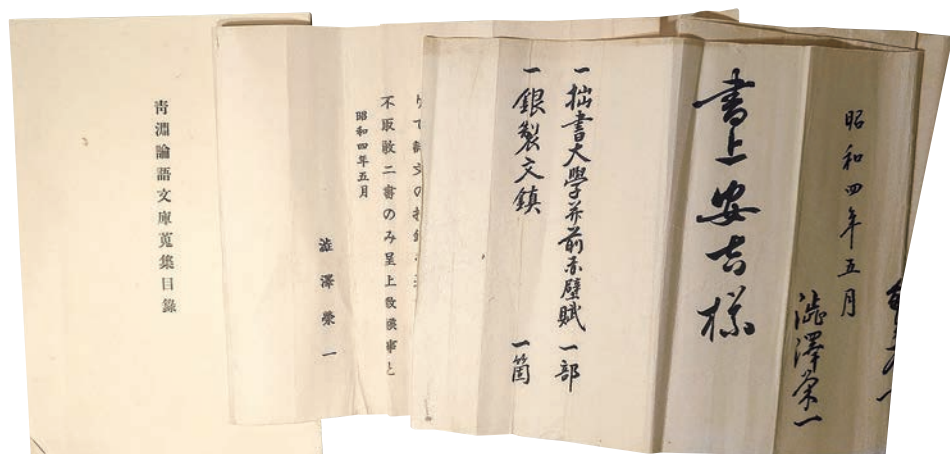 昭和四年五月
澁澤栄一
書上安吉様
一拙書大學并前赤壁賦 一部
一銀製文鎮 一箇
不取敢二書のみ呈上致候事と
昭和四年五月
澁澤榮一
靑淵論語文庫蒐集目錄